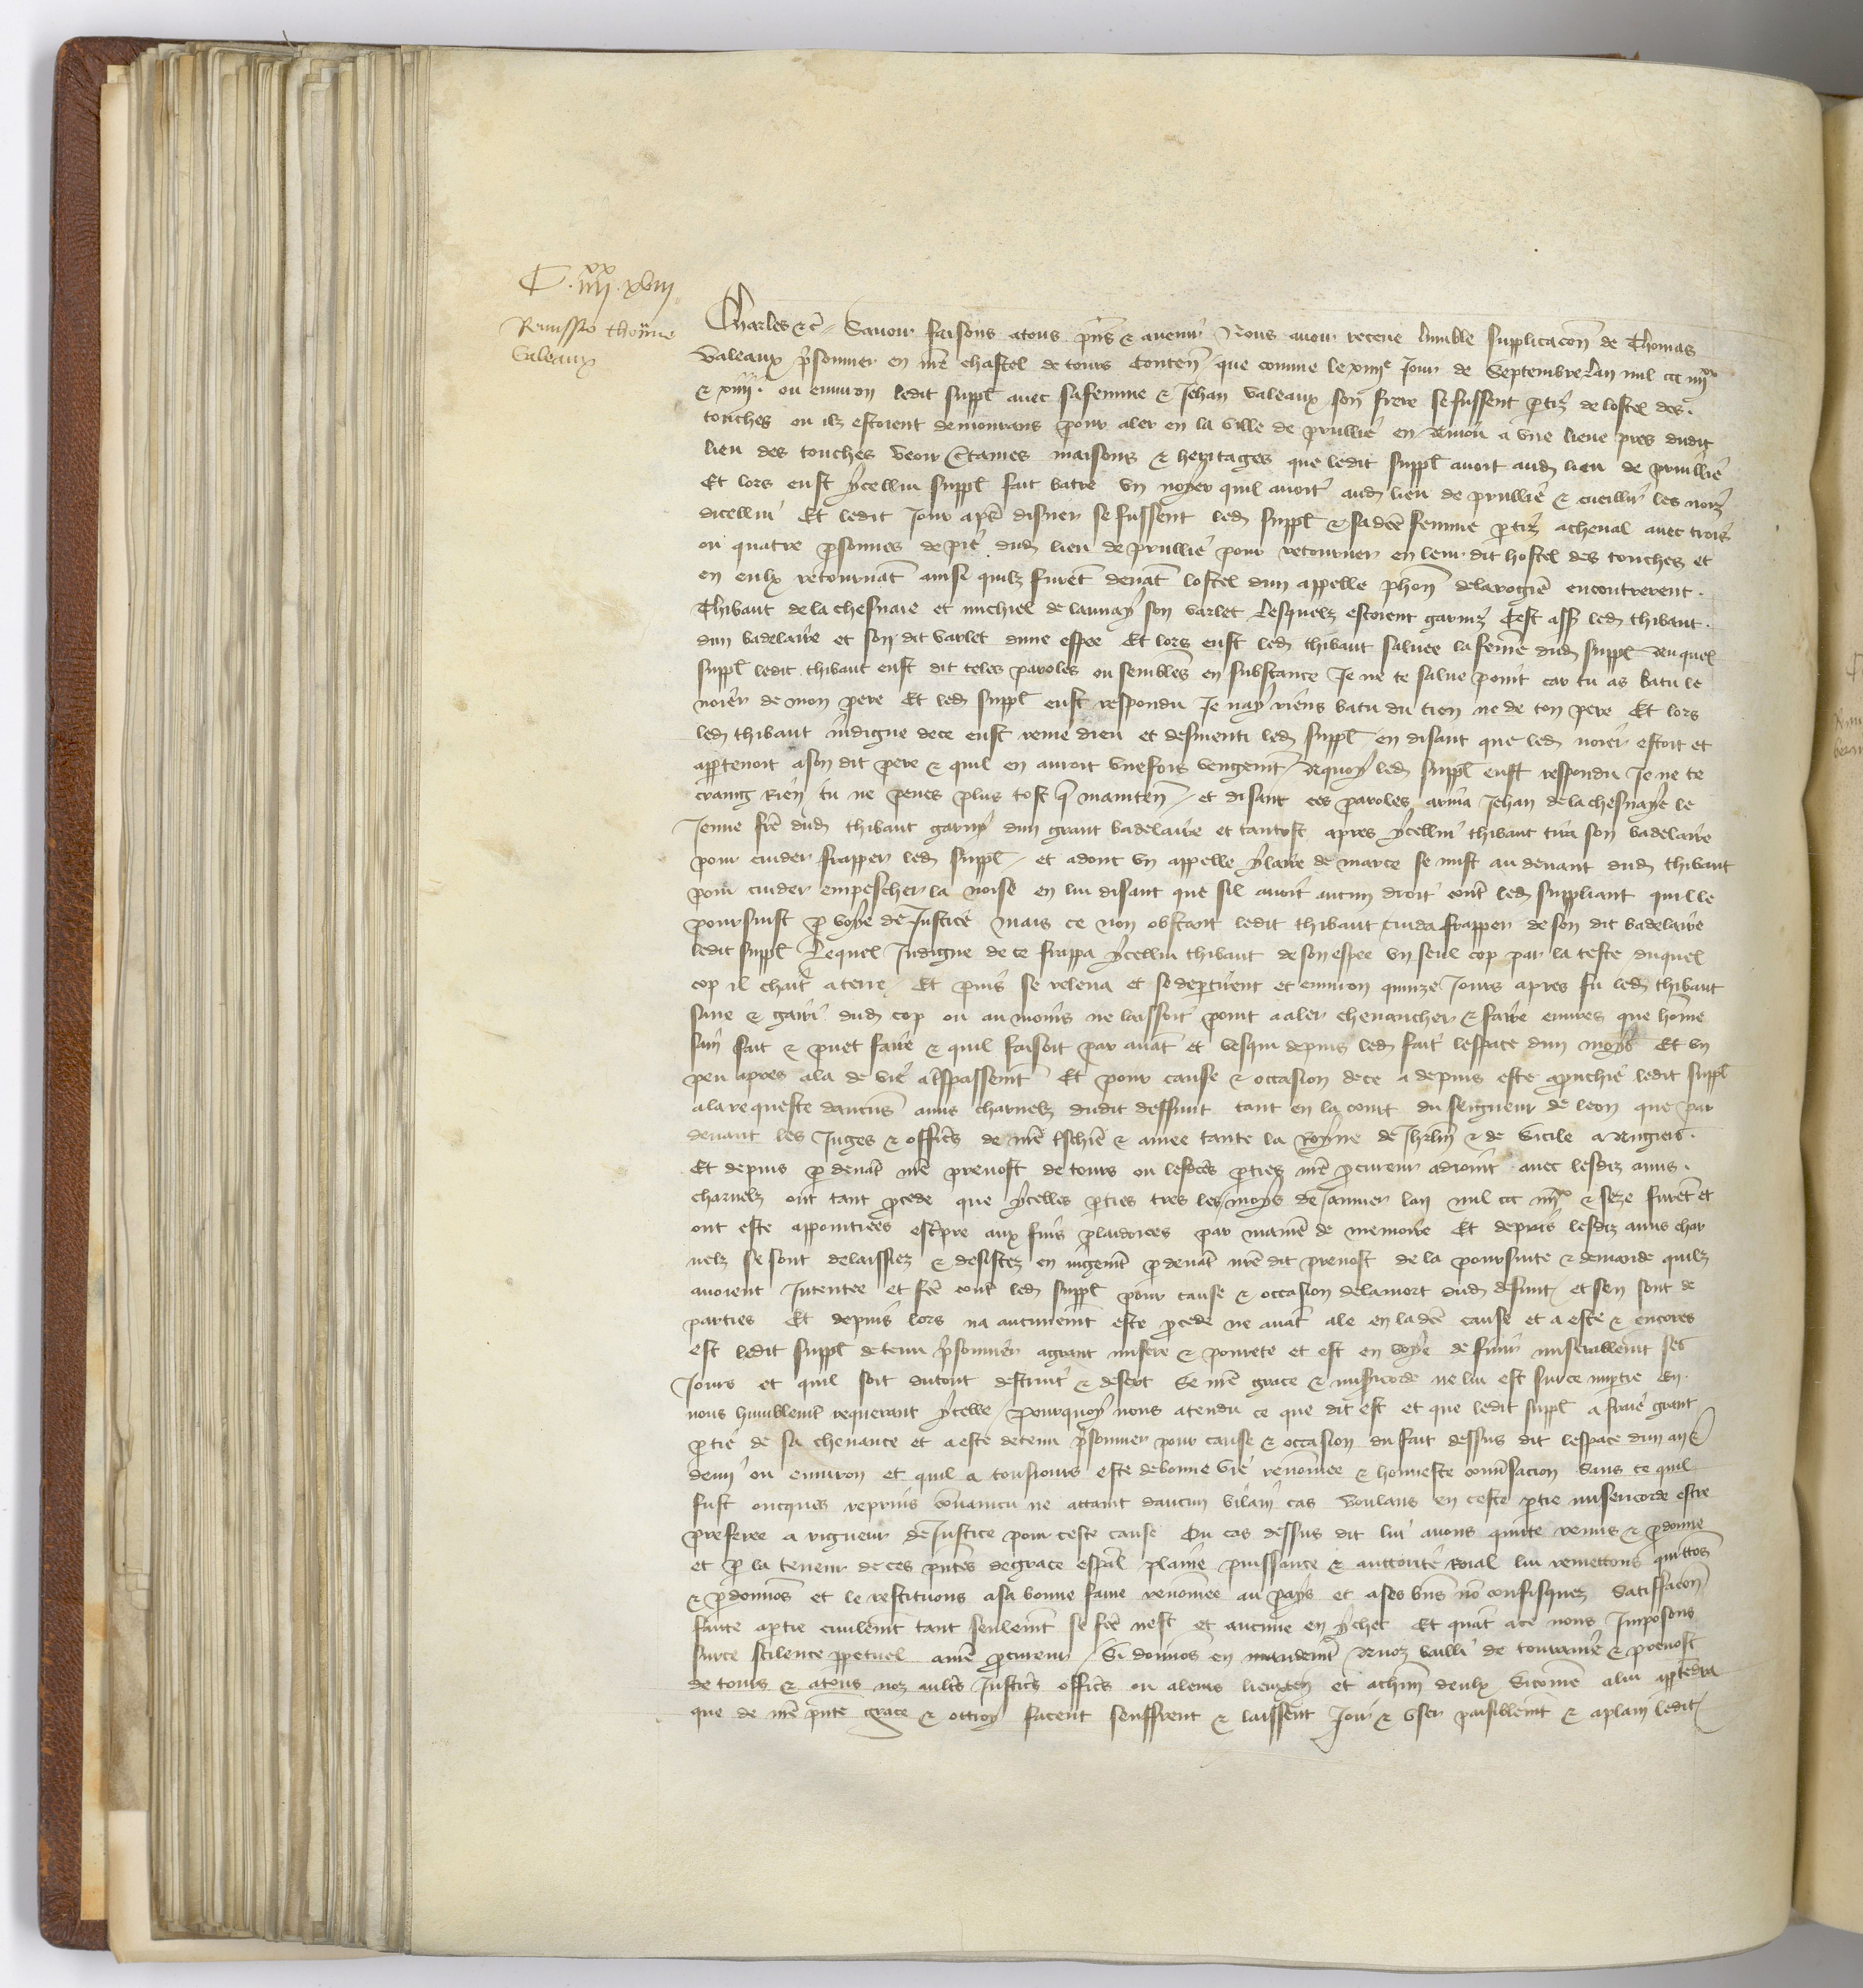 C. iiii xx. xviii
Remissio thome
Valeaux
Charles etc. Savoir faisons a tous pns et avenir Nous avoir receue lumble supplicacon de Thomas
Valeaux prisonnier en nre chastel de tours Conten que comme le xiiiie Jour de Septembre Lan mil ccc iiii xx
et xiiii. ou environ ledit suppl avec sa femme et Jehan Valeaux son frere se fussent ptiz de lostel des.
touches ou ilz estoient demourans pour aler en la ville de prullie en Aniou a une lieue pres dudit
lieu des touches veoir Ctaines maisons et heritages que ledit suppl avoit aud lieu de prullie
Et lors eust ycellui suppl fait batre un noyer quil avoit aud lieu de prullie et cueillir les noiz
dicellui Et ledit Jour apres disner se fussent led suppl et sa dce femme ptiz a cheval avec trois
ou quatre psonnes de pie dud lieu de prullie pour retourner en leur dit hostel des touches et
en eulx retournat ainsi quilz furet devat lostel dun appelle phon delarogie encontrerent.
Thibaut de la chesnaie et michiel de launay son varlet Lesquelz estoient garniz Cest ass led thibaut.
dun badelaire et son dit varlet dune espee Et lors eust led thibaut saluee la feme dud suppl Auquel
suppl ledit thibaut eust dit teles paroles ou sembles en substance Je ne te salue point car tu as batu le
noier de mon pere Et led suppl eust respondu Je nay riens batu du tien ne de ton pere Et lors
led thibaut indigne de ce eust renie dieu et desmenti led suppl en disant que led noier estoit et
apptenoit a son dit pere et quil en auroit une fois vengemt Aquoy led suppl eust respondu Je ne te
craing Rien tu ne peues plus tost q mainten et disant ces paroles arriva Jehan de la chesnaye le
Jeune fre dud thibaut garny dun grant badelaire et tantost apres ycellui thibaut tira son badelaire
pour cuider frapper led suppl et adont un appelle ylaire de marce se mist au devant dud thibaut
pour cuider empescher la noise en lui disant que sil avoit aucun droit cont led suppliant quil le
poursuist p voye de Justice mais ce non obstant ledit thibaut cuida frapper de son dit badelaire
ledit suppl Lequel Indigne de ce frappa ycellui thibaut de son espee un seul cop par la teste duquel
cop il chait a terre Et puis se releva et se deptirent et environ quinze Jours apres fu led thibaut
sane et gairi dud cop ou au moins ne laissoit point a aler chevaucher et faire euvres que home
sain fait et puet faire et quil faisoit par avat et vesqui depuis led fait lespace dun moys Et un
peu apres ala de vie a trespassemt Et pour cause et occasion de ce a depuis este aprouchie ledit suppl
a la requeste daucus amis charnelz dudit deffunt tant en la court du seigneur de leon que par
devant les Juges et offices de nre tschie et amee tante la Royne de Jhrlm et de Sicile a Angiers.
Et depuis p devat nre prevost de tours ou lesdces pties nre pcureur adioint avec lesdiz amis.
charnelz ont tant pcede que ycelles pties tres le moys de Janvier lan mil ccc iiii xx et seze furet et
ont este appointiees escpre aux fins plaidoiees par manie de memoire Et depuis lesdiz amis char
nelz se sont delaissiez et desistez en iugemt pdevat nre dit prevost de la poursuite et demande quilz
avoient Intentee et fce cont led suppl pour cause et occasion de la mort dud defunt et sen sont de
parties Et depuis lors na aucunemt este pcede ne avat ale en la dce cause et a este et encores
est ledit suppl detenu prisonnier a grant misere et povrete et est en voye de finir miserablemt ses
Jours et quil soit du tout destruit et desert Se nre grace et misericorde ne lui est sur ce imptie Sy.
nous humblemt requerant ycelle pourquoy nous atendu ce que dit est et que ledit suppl a fraie grant
ptie de sa chevance et a este detenu prisonnier pour cause et occasion du fait dessus dit lespace dun an et
demy ou environ et quil a tousiours este de bonne vie renomee et honneste convsacion Sans ce quil
fust oncques reprins convaincu ne attaint daucun vilain cas Voulans en ceste ptie misericorde estre
preferee a rigueur de Justice pour ceste cause Ou cas dessus dit lui avons quitte remis et pdonne
et p la teneur de ces pntes de grace espal plaine puissance et auttorite roial lui remettons quittos
et pdonnos et le restituons a sa bonne fame renomee au pays et a ses bns no confisquez Satisfacon
faicte a ptie civilemt tant seulemt se fce nest et aucune en y chet Et quat a ce nous Imposons
sur ce silence ppetuel a nre pcureur Si donnos en mandemt A noz bailli de touraine et prevost
de tours et a tous noz aultres Justices offices ou a leurs lieuxten et a chun deulx Si come a lui apptedra
que de nre pnte grace et ottroy facent seuffrent et laissent Joir et user paisiblemt et a plain ledit